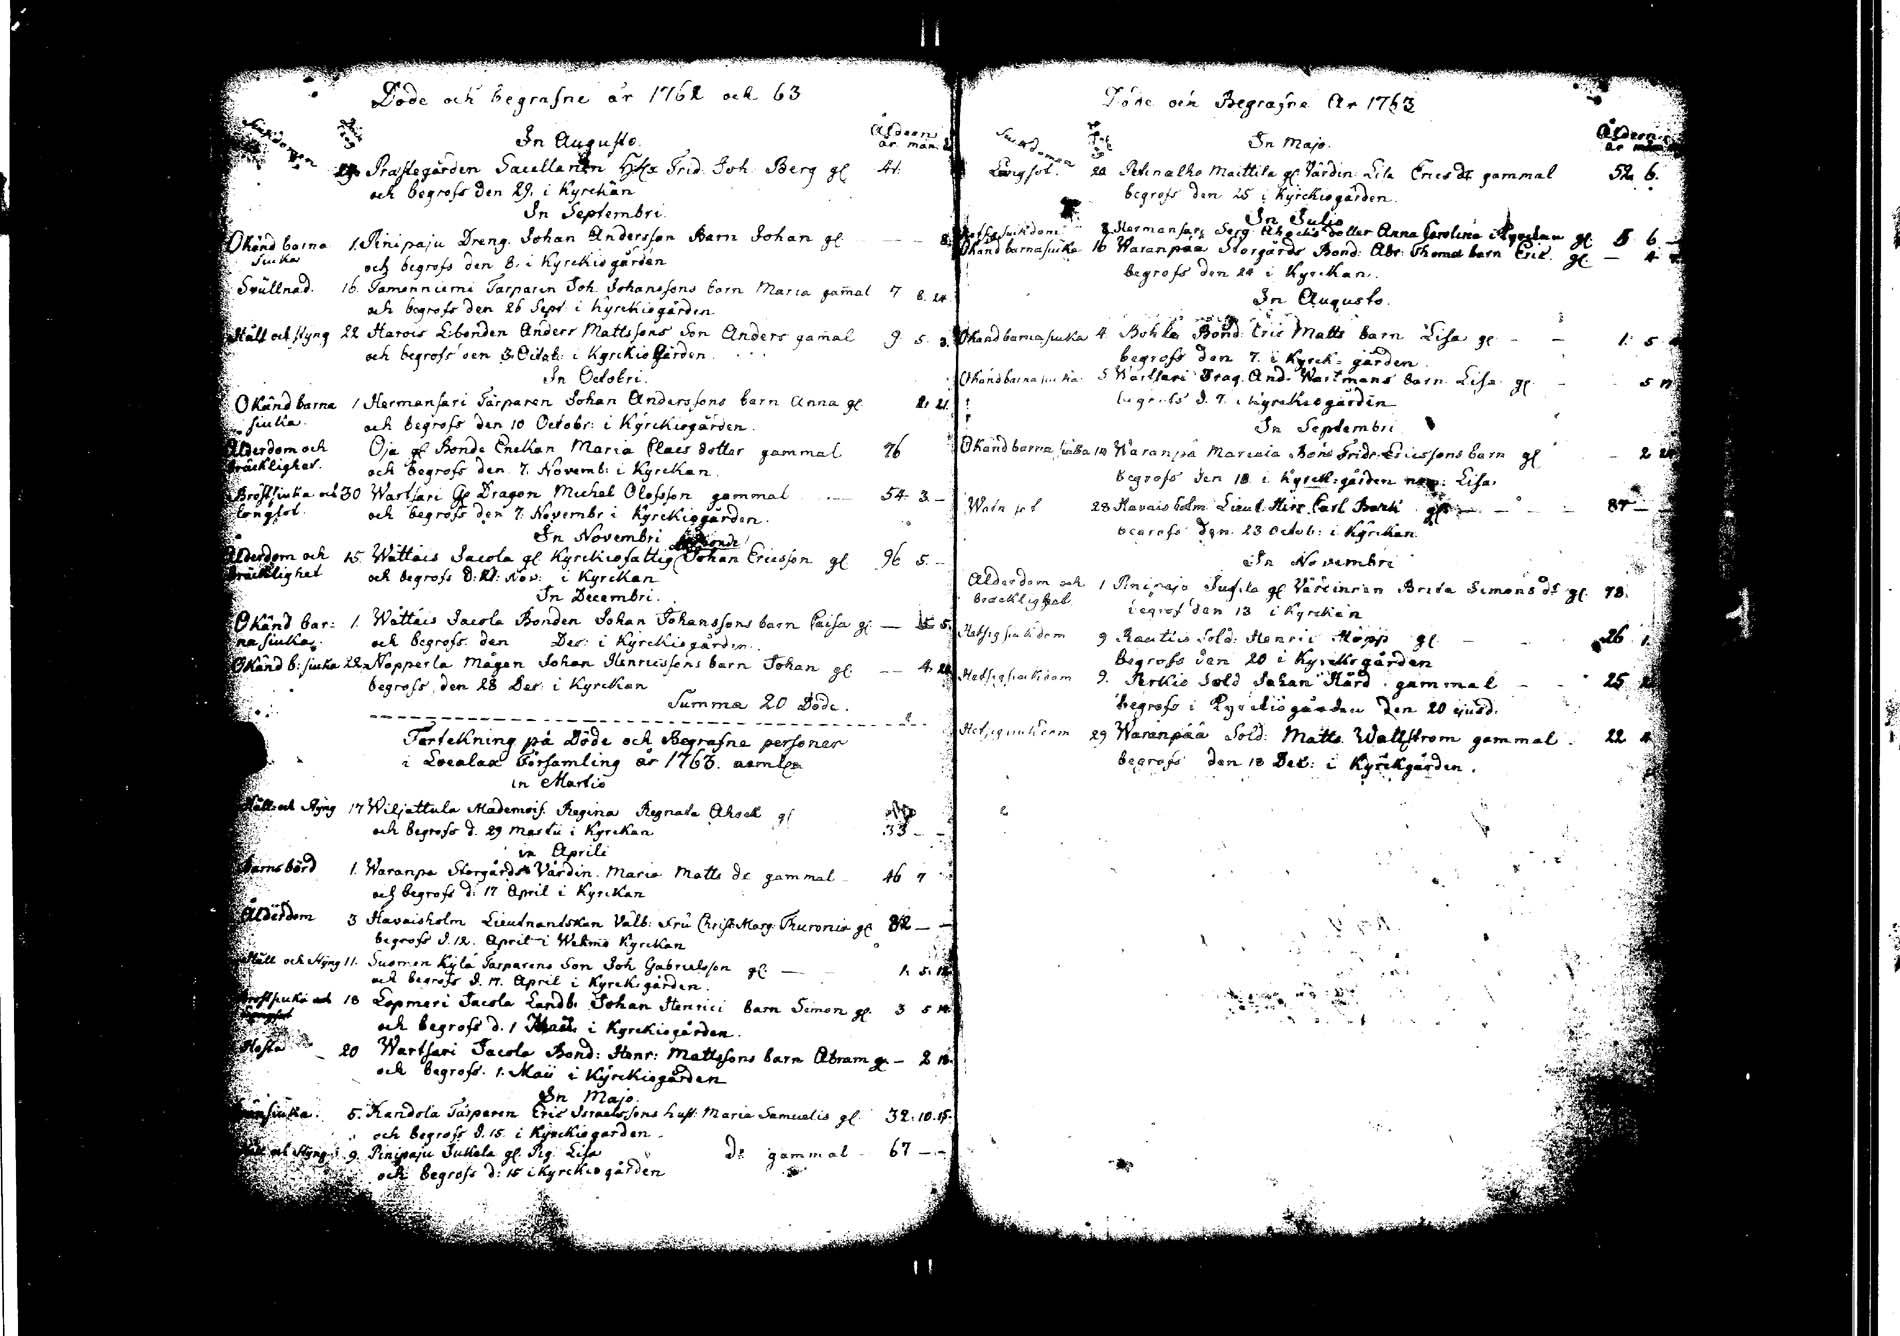 Döde och begrafne år 1762 och 63
Siukdomen
Åldern
år mån:
In Augusto.
Prästegården Sacellanen Frid. Joh. Berg gl 41.
och begrofs den 29. i Kyrckan
In Septembri.
Okänd barna 1. Pinipaju Dreng. Johan Andersson Barn Johan gl — — 8.
siuka och begrofs den 8. i Kyrckiogården
Svullnad. 16. Tamonniemi Torparen Joh. Johanssons barn Maria gamal 7 8. 24.
och begrofs den 26 Sept. i Kyrckiogården
Håll och styng 22 Harois Anders Mattssons Son Anders gamal 9. 5. 3.
och begrofs den 3. Octob: i Kyrckiogården.
In Octobri.
Okänd barna 1 Hermansari Torparen Johan Anderssons barn Anna gl 2. 21.
siuka. och begrofs den 10 Octobr: i Kyrckiogården.
Ålderdom och Oja gl Bonde Enckan Maria Claes dotter gammal 76
bräcklighet. och begrofs den 7. Novemb: i Kyrckan.
Bröstsiuka och 30 Wartsari gl Dragon Michel Olofsson gammal — 54. 3. —
långsot. och begrofs den 7. Novembr i Kyrckiogården.
In Novembri
Ålderdom och 15 Wättäis Jacola gl Kyrckiofattig Johan Ericsson gl 96 5. —
bräcklighet och begrofs d: 21: Nov: i Kyrckan
In Decembri.
Okänd bar: 1. Wättäis Jacola Bonden Johan Johanssons barn Caisa gl — 5.
na siuka. och begrofs den Dec: i Kyrckiogården.
Okänd b: siuka 22. Nopperla Mågen Johan Henricssons barn Johan gl — — 4.
begrofs den 28 Dec: i Kyrckan
Summa 20 Döde.
Förtekning på Döde och Begrafne personer
i Localax Församling år 1763.
in Martio
Håll och styng 17 Wiljattula Mademois. Regina Regnata Ahock gl 33 — —
och begrofs d. 29 Martii i Kyrckan
in Aprili
Barnsbörd 1. Waranpä Storgårds Värdin. Maria Matts dr gammal 46 7
och begrofs d: 17 April i Kyrckan
Ålderdom 3 Havaisholm Lieutnantskan Välb: Fru Christ: Marg: Thuronia gl 82 — —
begrofs d. 12. April i Wehmo Kyrckan
Håll och styng 11. Suomen Kylä Torparens Son Joh Gabrielsson gl — 1. 5. 12
och begrofs d. 17. April i Kyrckogården.
Bröstsiuka och 18 Lopmeri Jacola Landb: Johan Henrici barn Simon gl. 3 5 14.
och begrofs d. 1 Maii i Kyrckiogården.
Hosta 20 Wartsari Jacola Bond: Henr: Mattssons barn Abram gl — 2 18.
och begrofs. 1. Maii i Kyrckiogården
In Majo.
5. Kandola Torparen Eric Israelssons hust: Maria Samuelis gl. 32. 10. 15.
och begrofs d. 15. i Kyrckiogården.
Håll och styng 9. Pinipaju Jukola gl. Pig. Lisa dr gammal 67 — —
och begrofs d: 15 i Kyrckiogården
Döde och Begrafne År 1763
Siukdomen
Åldern
år mån
In Majo.
Långsot. 20 Mattila gl. Värdin. Lisa Ericsdr gammal 52 6.
begrofs den 25 i Kyrckiogården.
In Julio
Hetsig siukdom 8 Hermansari Serg: Ahocks dotter Anna Carolina i Kyrckan gl 5 6. —
Okänd barnasiuka 16 Waranpää Storgårds Bond: Abr: Thomæ barn Eric. gl. — 4
begrofs den 24 i Kyrckan.
In Augusto.
Okänd barnasiuka 4. Buhla Bond: Eric Matts Barn Lisa gl — — 1. 5
begrofs den 7. i Kyrck: gården.
Okänd barnasiuka 5 Wartsari Drag. And. Wartmans barn. Lisa. gl. — 5 17
begrofs d. 7. i Kyrckiogården
In Septembri
Okänd barna siuka 14 Waranpä Bond Fridr: Ericssons barn gl — 2
begrofs den 18. i Kyrck:gården nom: Lisa.
28 Havaisholm Lieut. Herr Carl gl — — 87 — —
begrofs den. 23 Octob: i Kyrckan.
In Novembri
Ålderdom och 1 Pinipaju gl Värdinnan Brita Simons dr gl. 78.
bräcklighet begrof den 13 i Kyrckan
Hetsig siukdom 9 Rautila Sold: Henric Hopp gl. — 26 1.
begrofs den 20 i Kyrckogården
Hetsig siukdom 9. Perkio Sold Johan Hård. gammal — — 25
begrofs i Kyrckiogården den 20 ejusd.
Hetsig siukdom 29 Waranpää Sold: Matts Wallstrom gammal. 22 4
begrofs den 18 Dec: i Kyrckgården.